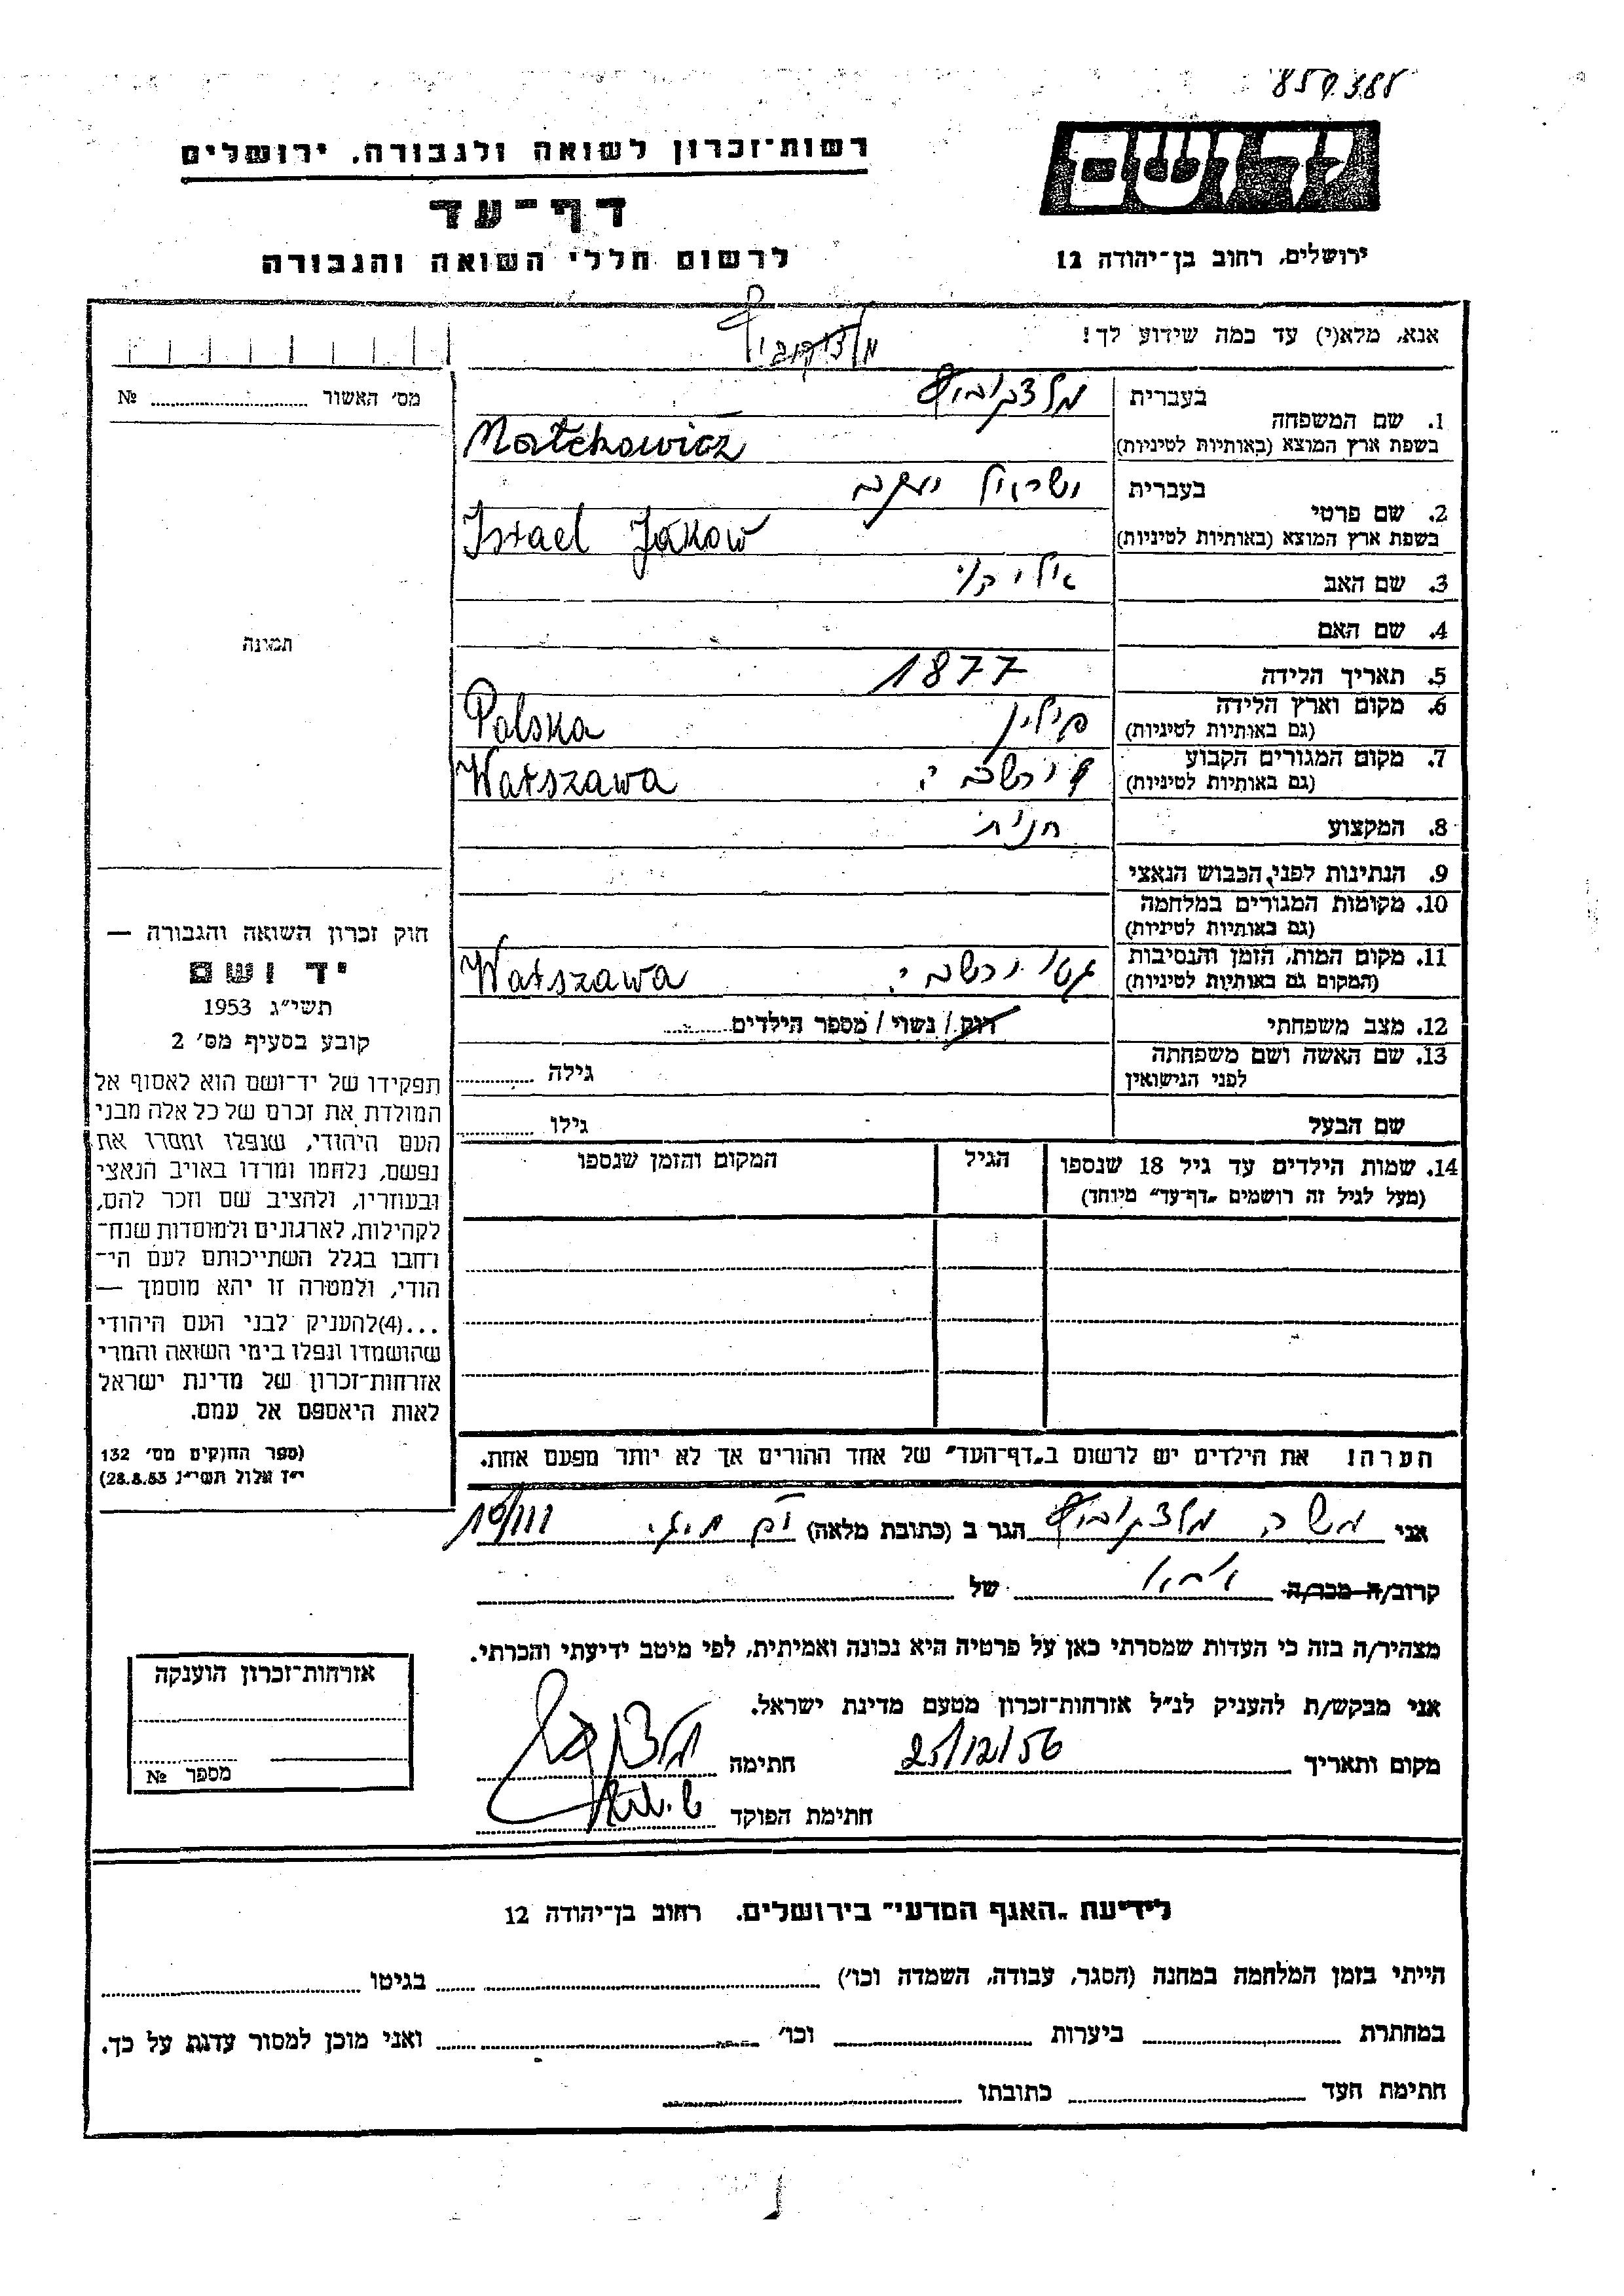 850.388
רשות־זכרון לשואה ולגבורה, ירושלים
יד ושם
דף־עד
לרשום חללי השואה והגבורה
ירושלים, רחוב בן־יהודה 12
אנא, מלא(י) עד כמה שידוע לך!
מלצקוביץ
מס׳ האשור ............ №
1. שם המשפחה
בעברית מלצקוביץ
בשפת ארץ המוצא (באותיות לטיניות) Malckowicz
2. שם פרטי
בעברית ישראל יעקב
בשפת ארץ המוצא (באותיות לטיניות) Israel Jakow
3. שם האב
4. שם האם
תמונה
5. תאריך הלידה 1877
6. מקום וארץ הלידה
(גם באותיות לטיניות) פולין Polska
7. מקום המגורים הקבוע
(גם באותיות לטיניות) Warszawa
8. המקצוע
9. הנתינות לפני הכבוש הנאצי
10. מקומות המגורים במלחמה
(גם באותיות לטיניות)
11. מקום המות, הזמן והנסיבות
(המקום גם באותיות לטיניות) גטו Warszawa
12. מצב משפחתי רוק / נשוי / מספר הילדים
13. שם האשה ושם משפחתה
לפני הנישואין גילה
שם הבעל גילו
14. שמות הילדים עד גיל 18 שנספו
(מעל לגיל זה רושמים „דף־עד” מיוחד)
הגיל
המקום והזמן שנספו
הערה! את הילדים יש לרשום ב„דף־העד” של אחד ההורים אך לא יותר מפעם אחת.
חוק זכרון השואה והגבורה —
יד ושם
תשי״ג 1953
קובע בסעיף מס׳ 2
תפקידו של יד־ושם הוא לאסוף אל
המולדת את זכרם של כל אלה מבני
העם היהודי, שנפלו ומסרו את
נפשם, נלחמו ומרדו באויב הנאצי
ובעוזריו, ולהציב שם וזכר להם,
לקהילות, לארגונים ולמוסדות שנח־
רבו בגלל השתייכותם לעם הי־
הודי, ולמטרה זו יהא מוסמך —
...(4)להעניק לבני העם היהודי
שהושמדו ונפלו בימי השואה והמרי
אזרחות־זכרון של מדינת ישראל
לאות היאספם אל עמם.
(ספר החוקים מס׳ 132
י״ז אלול תשי״ג 28.8.53)
אני משה מלצקוביץ הגר ב (כתובת מלאה)
קרוב/ה מכר/ה אבא של
מצהיר/ה בזה כי העדות שמסרתי כאן על פרטיה היא נכונה ואמיתית, לפי מיטב ידיעתי והכרתי.
אני מבקש/ת להעניק לנ״ל אזרחות־זכרון מטעם מדינת ישראל.
מקום ותאריך 25/12/56 חתימה
חתימת הפוקד
אזרחות־זכרון הוענקה
מספר №
לידיעת „האגף המדעי” בירושלים, רחוב בן־יהודה 12
הייתי בזמן המלחמה במחנה (הסגר, עבודה, השמדה וכו׳) בגיטו
במחתרת ביערות וכו׳ ואני מוכן למסור עדות על כך.
חתימת העד כתובתו